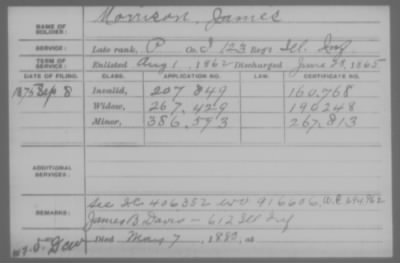 NAME OF SOLDIER: Morrison, James
SERVICE: Late rank, P Co. I 123 Reg't Ill. Inf
TERM OF SERVICE: Enlisted Aug 1, 1862 Discharged June 28, 1865
DATE OF FILING. CLASS. APPLICATION NO. LAW. CERTIFICATE NO.
1875 Sep 8 Invalid, 207.849 160.768
Widow, 267.429 190248
Minor, 386.593 267.813
ADDITIONAL SERVICES:
REMARKS: See I.C. 406352 WO 916606, W.C. 694962
James B Davis - 61 Ill Inf
Died May 7, 1880, at